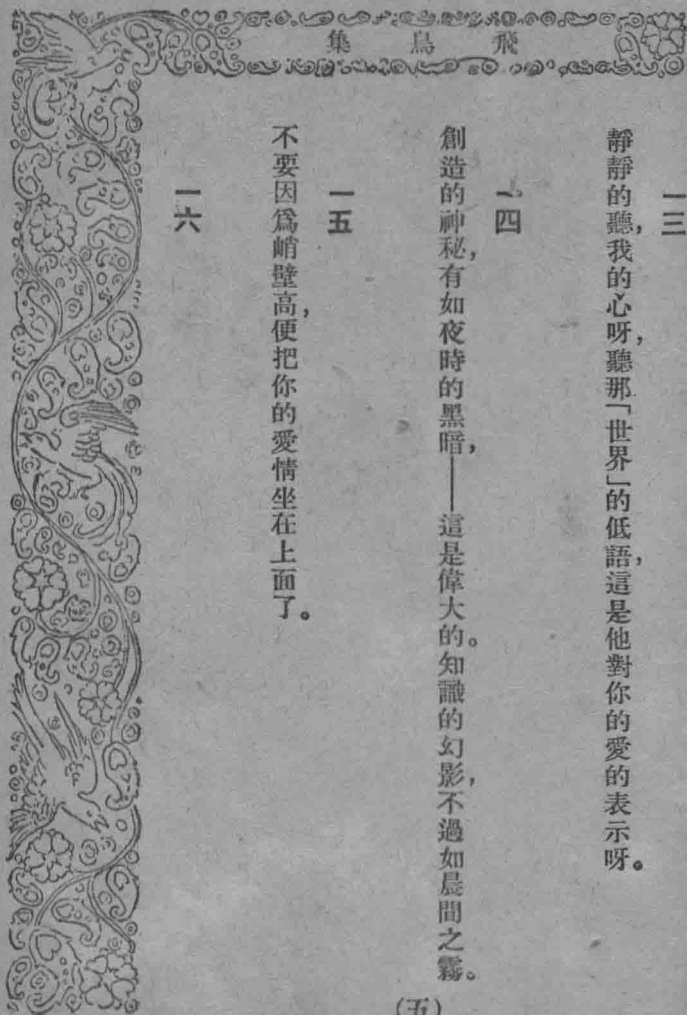 飛鳥集
一三
靜靜的聽,我的心呀,聽那「世界」的低語,這是他對你的愛的表示呀。
一四
創造的神秘,有如夜時的黑暗,——這是偉大的。知識的幻影,不過如晨間之霧。
一五
不要因爲峭壁高,便把你的愛情坐在上面了。
一六
(五)